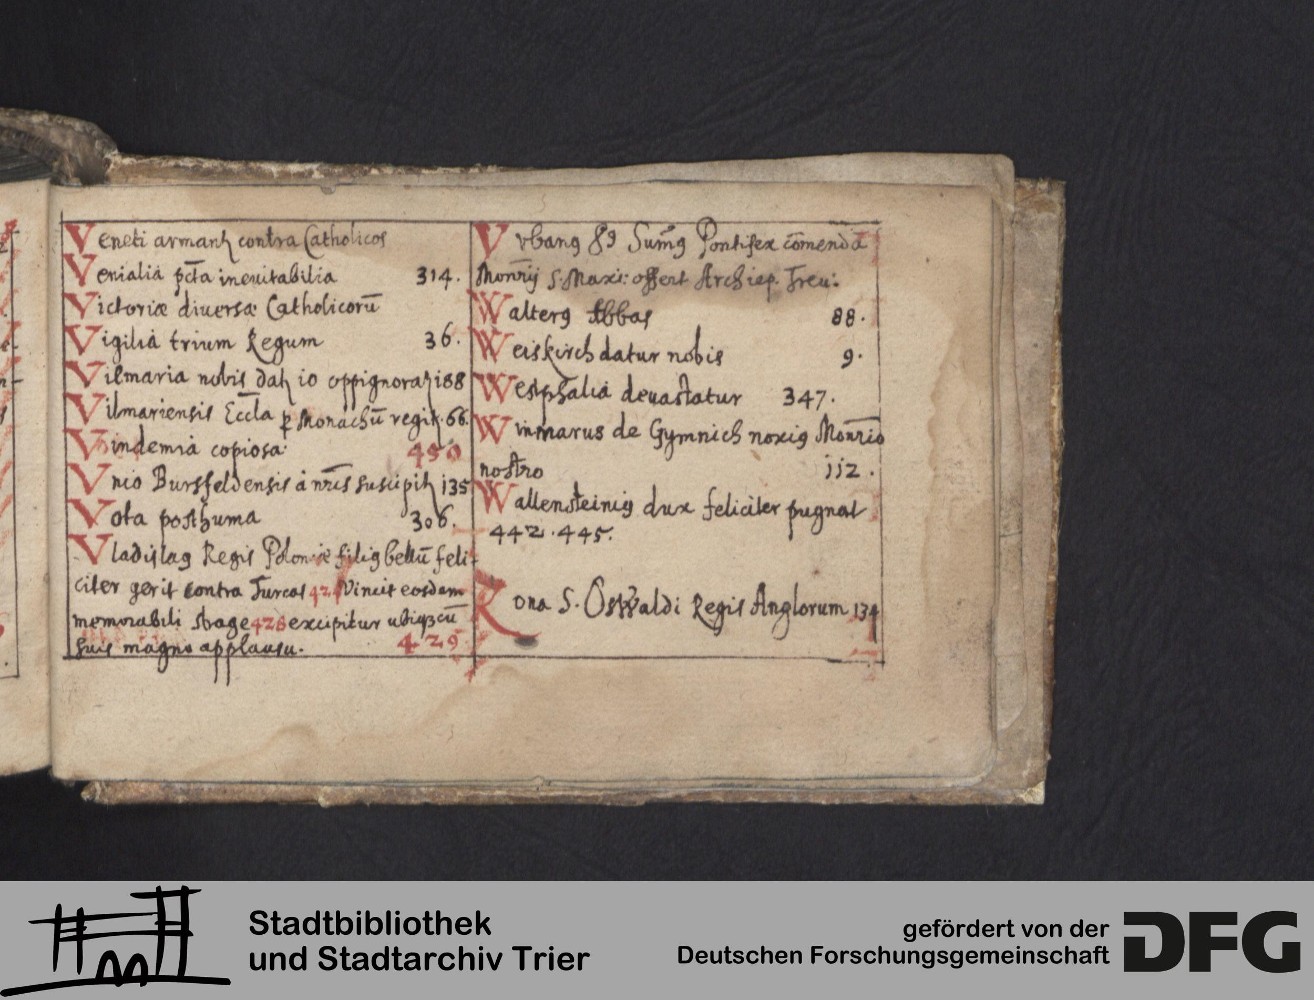 Veneti armantꝛ contra Catholicos
Venialia pc̄ta ineuitabilia 314.
Victoriæ diuersæ Catholicorū
Vigilia trium Regum 36.
Vilmaria nobis datꝛ io oppignoratꝛ 188
Vilmariensis Eccl̄a ꝑ Monachū regitꝛ. 66.
Vindemia copiosa. 450
Vnio Bursfeldensis à nr̄is suscipitꝛ 135
Vota posthuma 306.
Vladislaꝯ Regis Poloniæ filiꝯ bellū feli-
citer gerit contra Turcas 42 Vincit eosdem
memorabili strage 428 excipitur ubiqꝫ cū
suis magno applausu. 429
Vrbanꝯ 8ꝯ Sum̄ꝯ Pontifex com̄enda
Monr̄ij S. Maxi: offert Archiep. Treu:
Walterꝯ Abbas 88.
Weiskirch datur nobis 9.
Westphalia deuastatur 347.
Winmarus de Gymnich noxiꝯ Monr̄io
nostro 112.
Wallensteiniꝯ dux feliciter pugnat
442. 445.
Zona S. Oswaldi Regis Anglorum 134
Stadtbibliothek
und Stadtarchiv Trier
gefördert von der
Deutschen Forschungsgemeinschaft
DFG